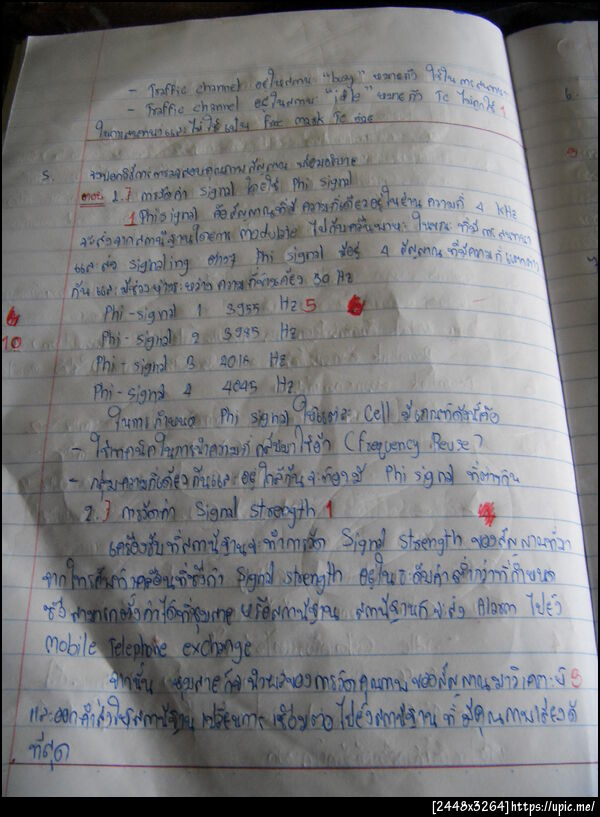 - Traffic channel อยู่ในสถานะ "busy" หมายถึง ใช้ในการสนทนา
- Traffic channel อยู่ในสถานะ "idle" หมายถึง TC ไม่ถูกใช้ 1
ในการสนทนาและไม่ใช้เป็น TC ด้วย
5. จงบอกวิธีการตรวจสอบคุณภาพสัญญาณ พร้อมอธิบาย
ตอบ การวัดค่า Signal โดยใช้ Phi Signal
1 Phi signal คือสัญญาณที่มีความถี่เดียวอยู่ในย่านความถี่ 4 kHz
จะส่งจากสถานีฐานโดยการ ไปกับคลื่นพาหะ ในขณะที่มีการสนทนา
และส่ง signaling ต่างๆ Phi signal มีอยู่ 4 สัญญาณที่มีความถี่แตกต่าง
กันและมีช่วงห่างระหว่างความถี่ข้างเคียง 30 Hz
Phi-signal 1 3955 Hz 5
10
Phi-signal 2 3985 Hz
Phi-signal 3 4015 Hz
Phi-signal 4 4045 Hz
ในการกำหนด Phi signal ให้แต่ละ Cell มีเกณฑ์ดังนี้คือ
- ใช้เทคนิคในการนำความถี่กลับมาใช้ซ้ำ (Frequency Reuse)
- กลุ่มความถี่เดียวกันและอยู่ใกล้กันจะต้องมี Phi signal ที่ต่างกัน
การวัดค่า Signal strength 1
เครื่องรับที่สถานีฐานจะทำการวัด Signal strength ของสัญญาณที่มา
จากโทรศัพท์เคลื่อนที่ซึ่งถ้า Signal strength อยู่ในระดับค่าต่ำกว่าที่กำหนด
ซึ่งสามารถตั้งค่าได้ที่ชุมสาย หรือสถานีฐาน สถานีฐานก็จะส่ง Alarm ไปยัง
Mobile Telephone exchange
จากนั้น ชุมสายก็จะนำผลของการวัดคุณภาพของสัญญาณมาวิเคราะห์ 5
และออกคำสั่งให้สถานีฐานเปลี่ยนการเชื่อมต่อไปยังสถานีฐานที่มีคุณภาพเสียงดี
ที่สุด
[2448x3264] https://upic.me/